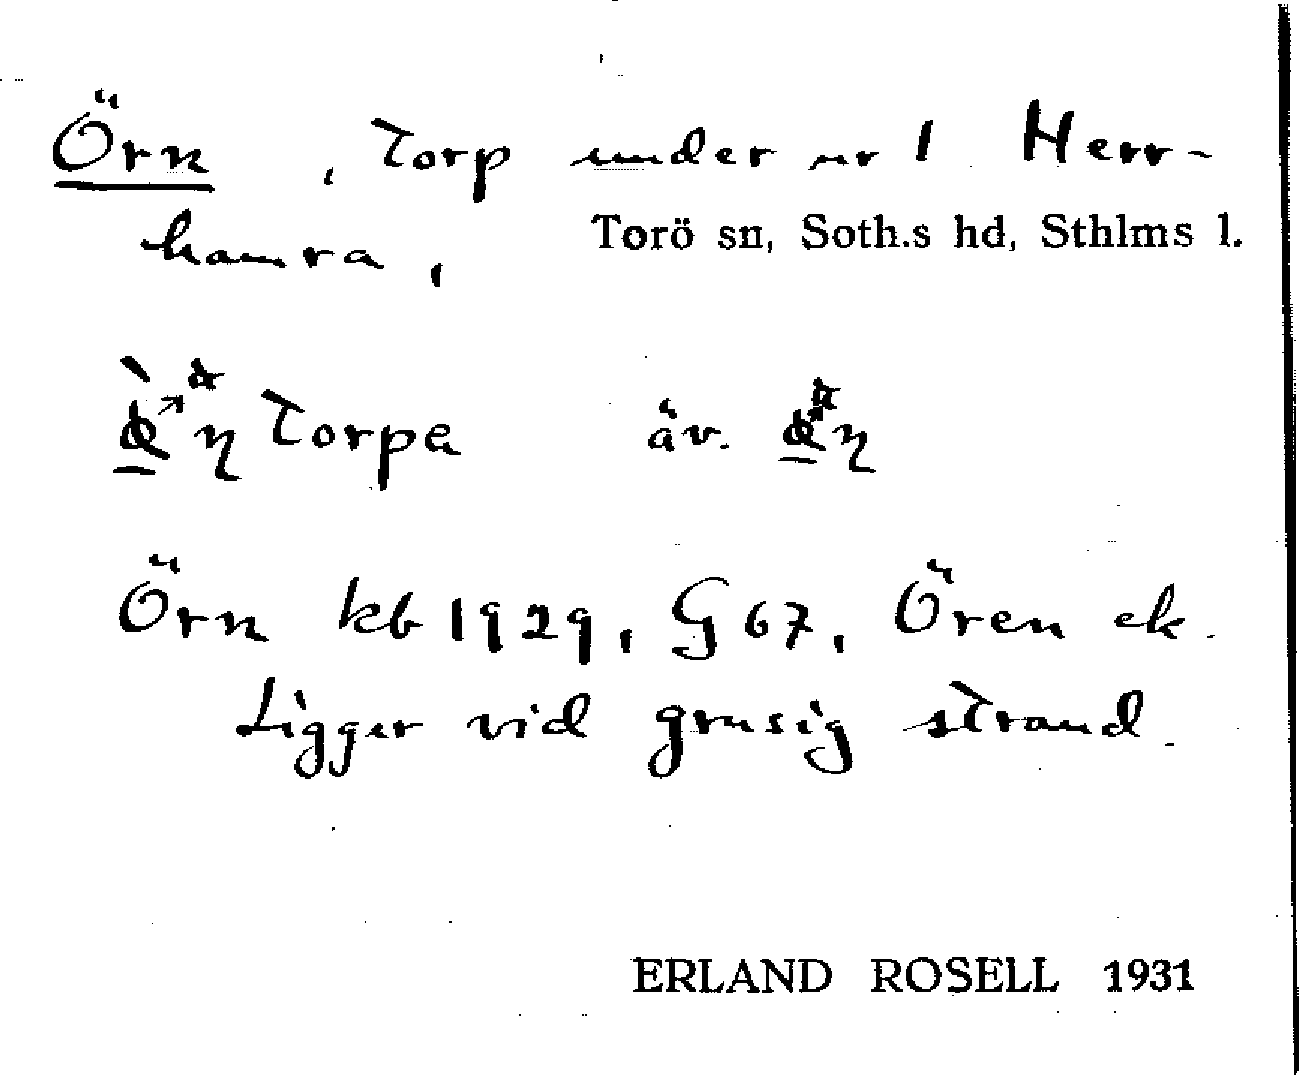 Örn, torp under nr 1 Herr-
hamra, Torö sn, Soth.s hd, Sthlms l.
torpa äv.
Örn kb 1929, G 67, Ören ek.
Ligger vid grusig strand.
ERLAND ROSELL 1931